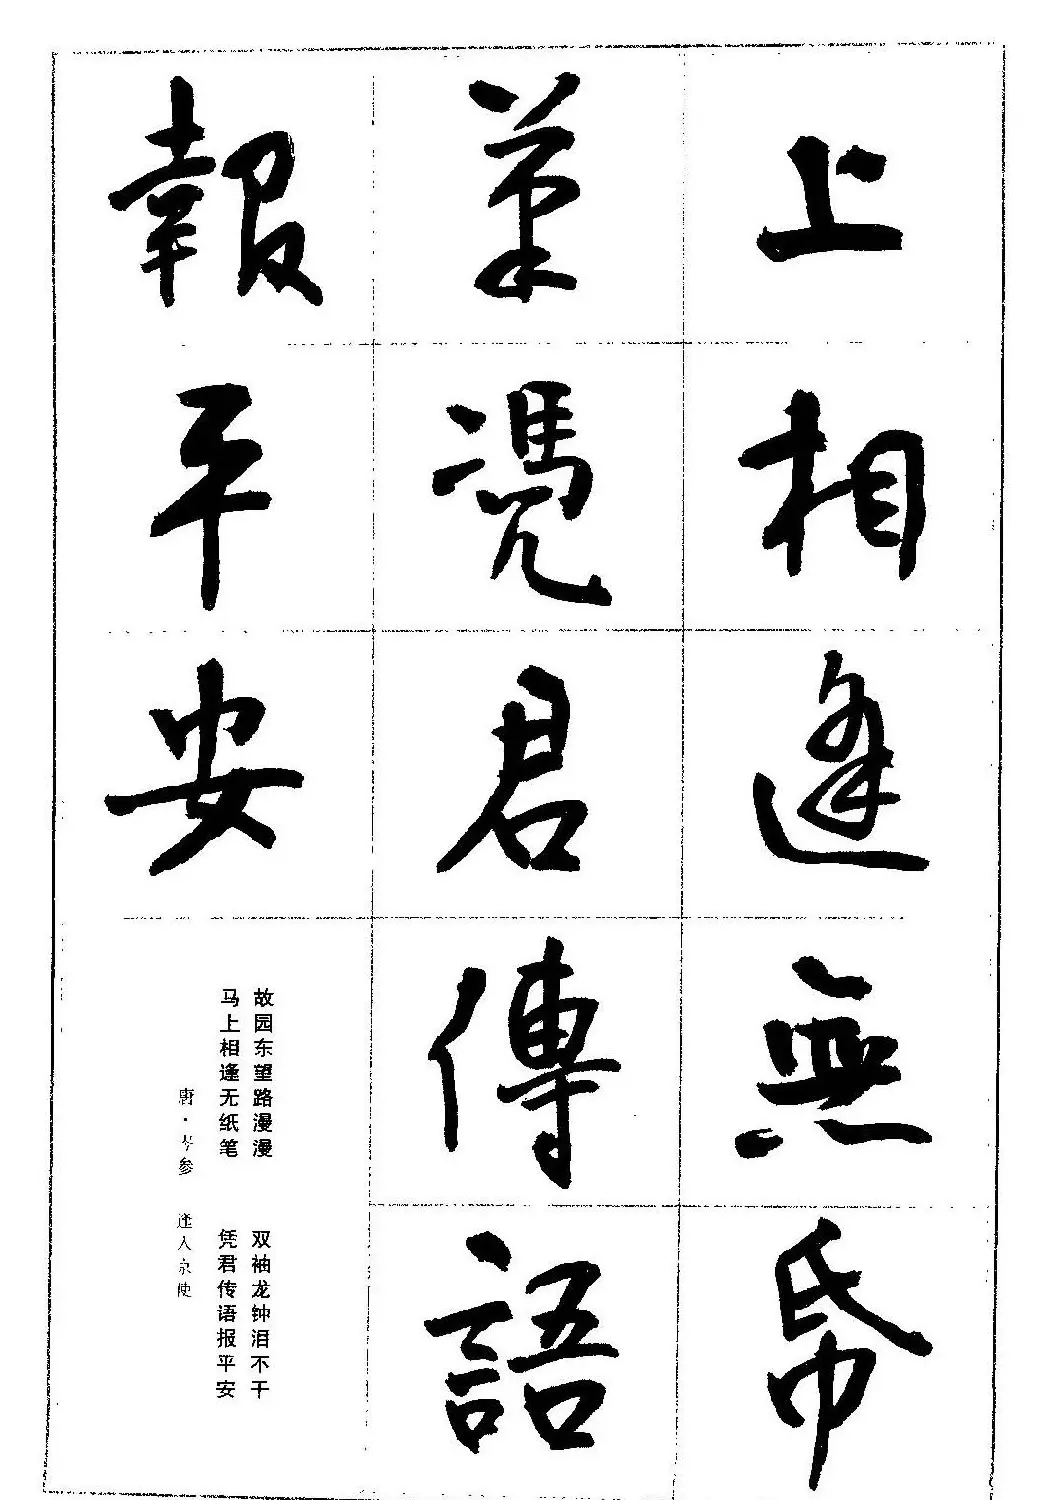 上相逢無帋
筆凴君傳語
報平安
故园东望路漫漫 双袖龙钟泪不干
马上相逢无纸笔 凭君传语报平安
唐·岑参 逢入京使